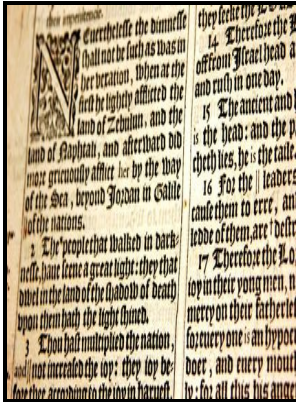 their impenitencie.
Neuerthelesse the dimnesse
shall not be such as was in
her vexation, when at the
first he lightly afflicted the
land of Zebulun, and the
land of Naphtali, and afterward did
more grieuously afflict her by the way
of the Sea, beyond Jordan in Galile
of the nations.
2 The people that walked in dark-
nesse, haue seene a great light: they that
dwel in the land of the shadow of death
vpon them hath the light shined.
3 Thou hast multiplied the nation,
and not increased the ioy: they ioy be-
fore thee according to the ioy in haruest,
they seeke the
14 Therefore the
off from Israel head a
and rush in one day.
15 The ancient and
is the head: and the p
cheth lies, he is the taile.
16 For the || leaders
cause them to erre, an
ledde of them, are destr
17 Therefore the Lo
ioy in their yong men, n
mercy on their fatherles
for euery one is an hypoc
doer, and euery mouth
ly: for all this his ange